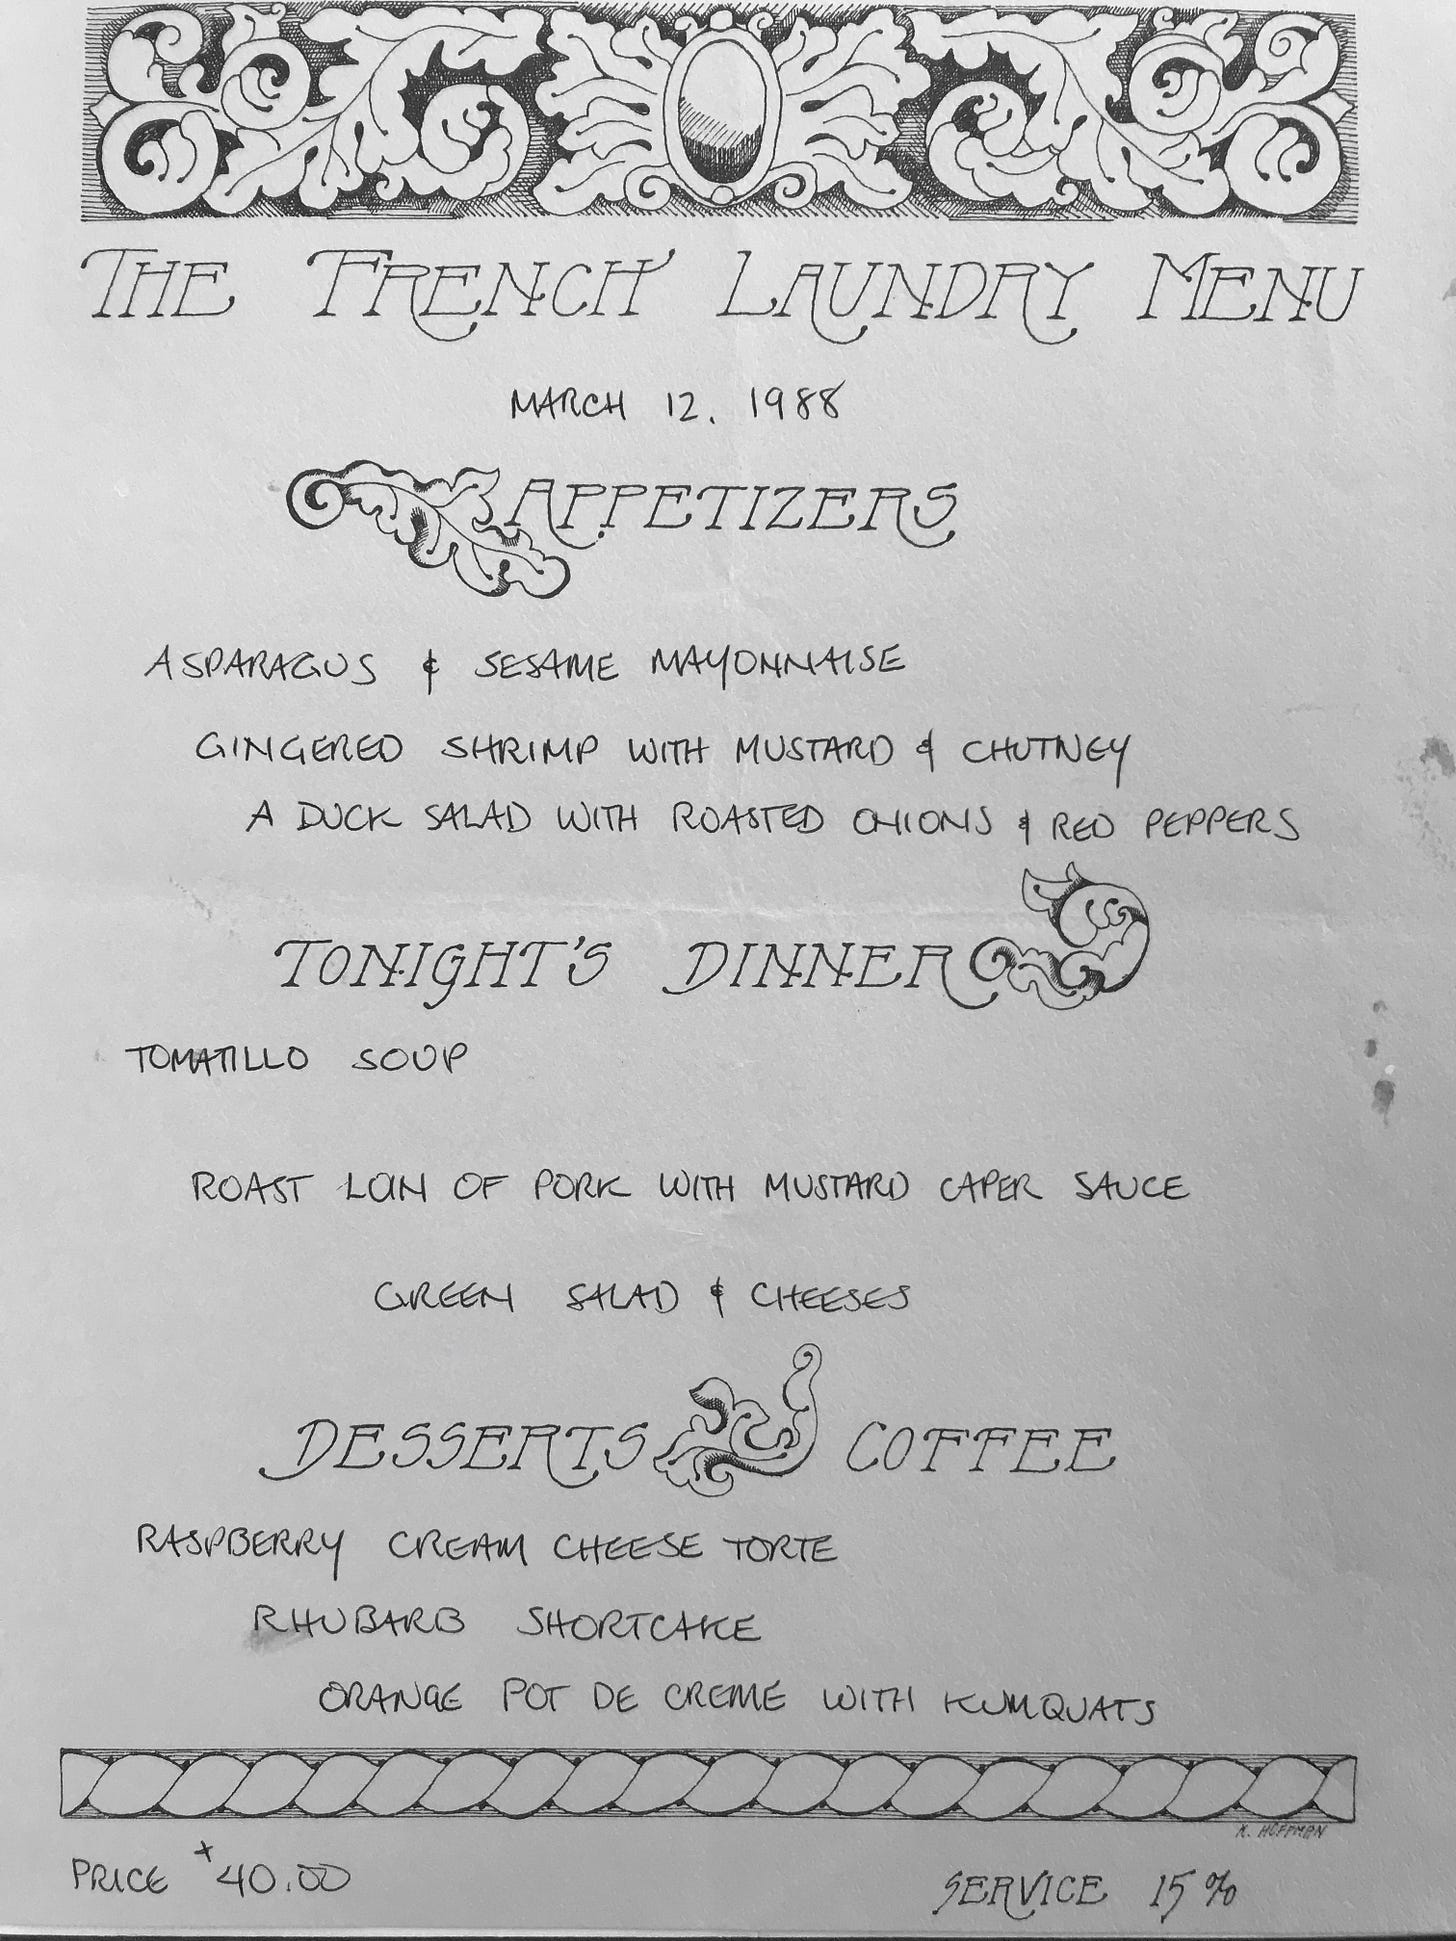 THE FRENCH LAUNDRY MENU
MARCH 12, 1988
APPETIZERS
ASPARAGUS & SESAME MAYONNAISE
GINGERED SHRIMP WITH MUSTARD & CHUTNEY
A DUCK SALAD WITH ROASTED ONIONS & RED PEPPERS
TONIGHT'S DINNER
TOMATILLO SOUP
ROAST LOIN OF PORK WITH MUSTARD CAPER SAUCE
GREEN SALAD & CHEESES
DESSERTS COFFEE
RASPBERRY CREAM CHEESE TORTE
RHUBARB SHORTCAKE
ORANGE POT DE CREME WITH KUMQUATS
K. HOFFMAN
PRICE +40.00
SERVICE 15%